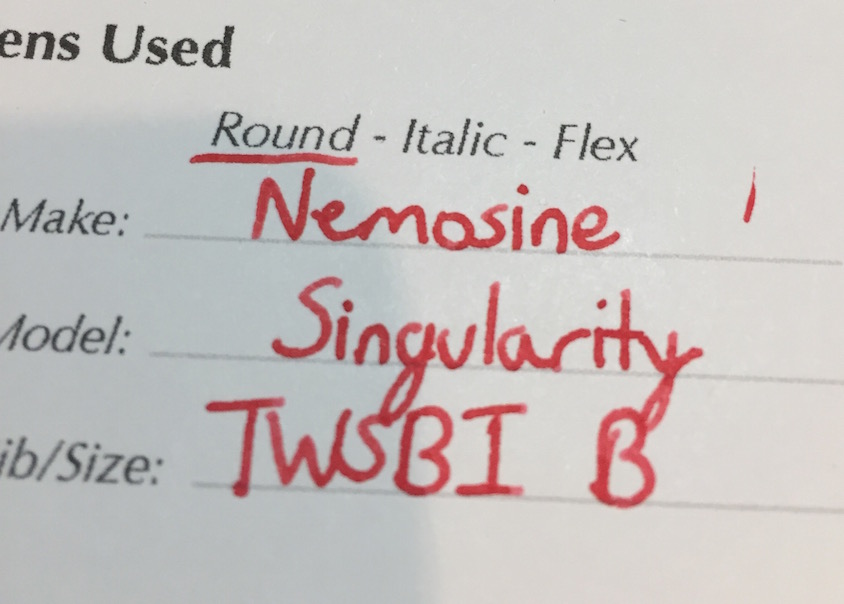 ens Used
Round - Italic - Flex
Make: Nemosine
Model: Singularity
ib/Size: TWSBI B